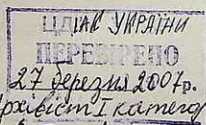 ЦДІАК УКРАЇНИ
ПЕРЕВІРЕНО
27 березня 2007р.
рхівіст I катего